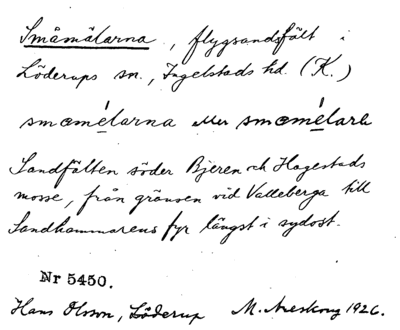 Småmälarna, flygsandsfält i
Löderups sn., Ingelstads hd. (K.)
smȯmélarna eller smȯmélare
Sandfälten söder Bjeren och Hagestads
mosse, från gränsen vid Valleberga till
Sandhammarens fyr längst i sydost.
Nr 5450.
Hans Olsson, Löderup M. Areskoug 1926.